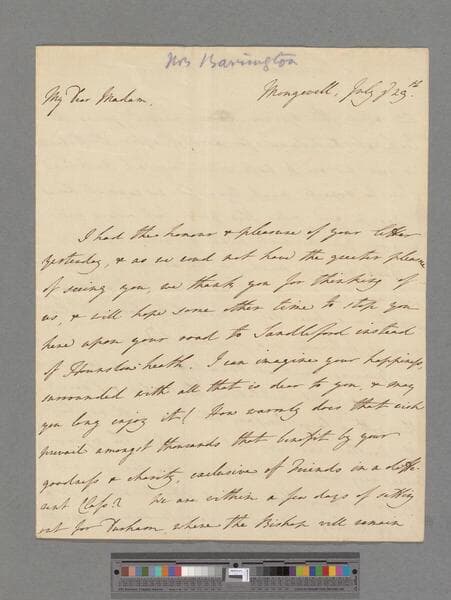 Mrs Barrington
My Dear Madam.
Mongewell, July ye 29th.
I had the honour & pleasure of your letter
yesterday, & as we coud not have the greater pleasure
of seeing you, we thank you for thinking of
us, & will hope some other time to stop you
here upon your road to Sandleford instead
of Hounslow heath. I can imagine your happiness,
surrounded with all that is dear to you, & may
you long enjoy it! How warmly does that wish
prevail amongst thousands that benefit by your
goodness & charity, exclusive of Friends in a diffe-
rent Class? We are within a few days of setting
out for Durham where the Bishop will remain